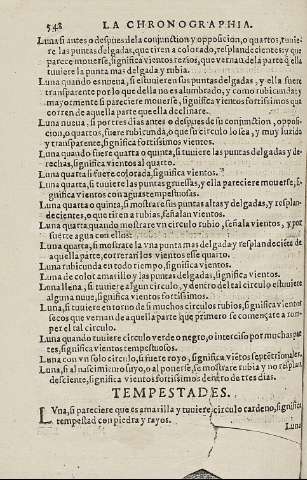 548 LA CHRONOGRAPHIA.
Luna si antes o despues de la conjunstion y opposicion, o quartos, tuuie-
re las puntas delgadas, que tiren a colorado, resplandecientes: y que
parece mouerse, significa vientos rezios, que vernan dela parte q̃ ella
tuuiere la punta mas delgada y rubia.
Luna quando es nueua, si estuuieren sus puntas delgadas, y ella fuere
transparente por lo que della no es alumbrado, y como rubicunda; y
mayormente si pareciere mouerse, significa vientos fortissimos que
corren de aquella parte que ella declinare.
Luna nueua, si por tres dias antes o despues de su conjunstion, opposi-
cion, o quartos, fuere rubicunda, o que su circulo lo sea, y muy luzido
y transparente, significa fortissimos vientos.
Luna quando fuere quarta o quinta, si tuuiere las puntas delgadas y de-
rechas, significa vientos al quarto.
Luna quarta si fuere colorada, significa vientos.
Luna quarta, si tuuiere las puntas gruessas, y ella pareciere mouerse, si-
gnifica vientos con aguas tempestuosas.
Luna quarta o quinta, si mostrare sus puntas altas y delgadas, y resplan-
decientes, o que tiren a rubias, señalan vientos.
Luna quarta quando mostrare vn circulo rubio, señala vientos, y por
suerte agua con ellos.
Luna quarta, si mostrare la vna punta mas delgada y resplandeciẽte de
aquella parte, correran los vientos esse quarto.
Luna rubicunda en todo tiempo, significa vientos.
Luna de color amarillo y las puntas delgadas, significa vientos.
Luna llena, si tuuiere algun circulo, y dentro del tal circulo estuuiere
alguna nuue, significa vientos fortissimos.
Luna, si tuuiere en torno de si muchos circulos rubios, significa vientos
secos que vernan de aquella parte que primero se començare a rom-
per el tal circulo.
Luna quando tuuiere circulo verde o negro, o interciso por muchas par
tes, significa vientos tempestuosos.
Luna con vn solo circulo, si fuere royo, significa viẽtos septẽtrionales.
Luna, si al nascimiento suyo, o al ponerse, se mostrare rubia y no resplan
desciente, significa vientos fortissimos dentro de tres dias.
TEMPESTADES.
LVna, si pareciere que es amarilla y tuuiere circulo cardeno, significa
tempestad con piedra y rayos.
Luna